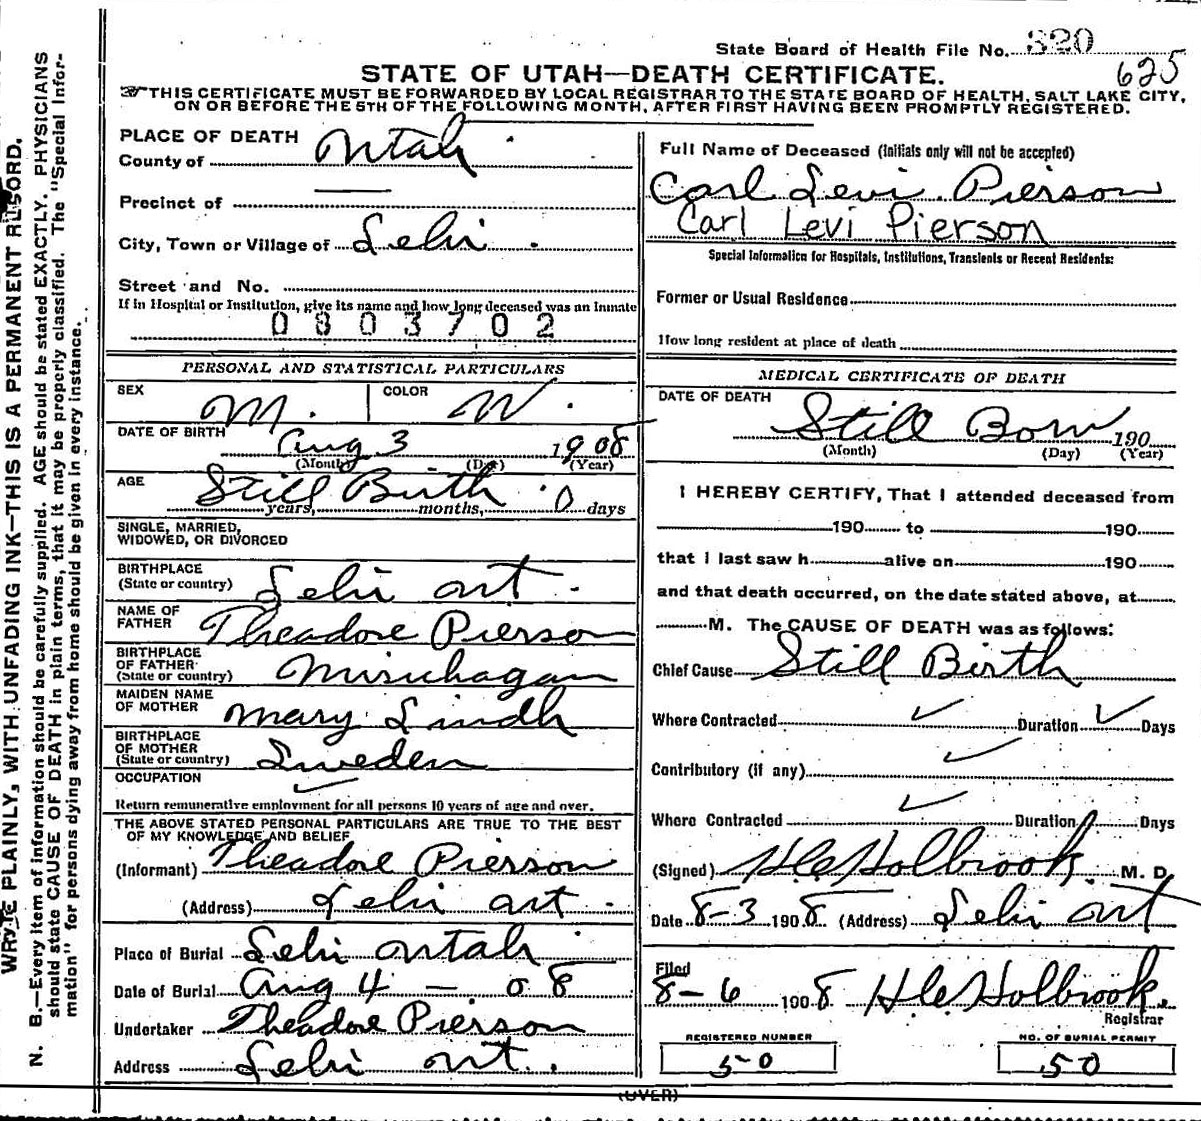 State Board of Health File No. 320
625
STATE OF UTAH—DEATH CERTIFICATE.
THIS CERTIFICATE MUST BE FORWARDED BY LOCAL REGISTRAR TO THE STATE BOARD OF HEALTH, SALT LAKE CITY,
ON OR BEFORE THE 5TH OF THE FOLLOWING MONTH, AFTER FIRST HAVING BEEN PROMPTLY REGISTERED.
WRITE PLAINLY, WITH UNFADING INK—THIS IS A PERMANENT RECORD.
N. B.—Every item of information should be carefully supplied. AGE should be stated EXACTLY. PHYSICIANS
should state CAUSE OF DEATH in plain terms, that it may be properly classified. The "Special Infor-
mation" for persons dying away from home should be given in every instance.
PLACE OF DEATH
County of Utah
Precinct of —
City, Town or Village of Lehi
Street and No.
If in Hospital or Institution, give its name and how long deceased was an inmate
0803702
PERSONAL AND STATISTICAL PARTICULARS
SEX M. COLOR W.
DATE OF BIRTH Aug 3 1908
(Month) (Day) (Year)
AGE Still Birth 0
years, months, days
SINGLE, MARRIED,
WIDOWED, OR DIVORCED
BIRTHPLACE
(State or country) Lehi Ut
NAME OF
FATHER Theadore Pierson
BIRTHPLACE
OF FATHER
(State or country) Misichagan
MAIDEN NAME
OF MOTHER Mary Lindh
BIRTHPLACE
OF MOTHER
(State or country) Sweden
OCCUPATION ✓
Return remunerative employment for all persons 10 years of age and over.
THE ABOVE STATED PERSONAL PARTICULARS ARE TRUE TO THE BEST
OF MY KNOWLEDGE AND BELIEF
(Informant) Theadore Pierson
(Address) Lehi Ut
Place of Burial Lehi Utah
Date of Burial Aug 4 — 08
Undertaker Theadore Pierson
Address Lehi Ut.
Full Name of Deceased (Initials only will not be accepted)
Carl Levi Pierson
Carl Levi Pierson
Special Information for Hospitals, Institutions, Transients or Recent Residents:
Former or Usual Residence
How long resident at place of death
MEDICAL CERTIFICATE OF DEATH
DATE OF DEATH
Still Born 190
(Month) (Day) (Year)
I HEREBY CERTIFY, That I attended deceased from
190 to 190
that I last saw h alive on 190
and that death occurred, on the date stated above, at
M. The CAUSE OF DEATH was as follows:
Chief Cause Still Birth
Where Contracted ✓ Duration ✓ Days
Contributory (if any) ✓
Where Contracted ✓ Duration Days
(Signed) H. C. Holbrook M. D.
Date 8-3 1908 (Address) Lehi Ut
Filed
8-6 1908 H. C. Holbrook.
Registrar
REGISTERED NUMBER NO. OF BURIAL PERMIT
50 50
(OVER)